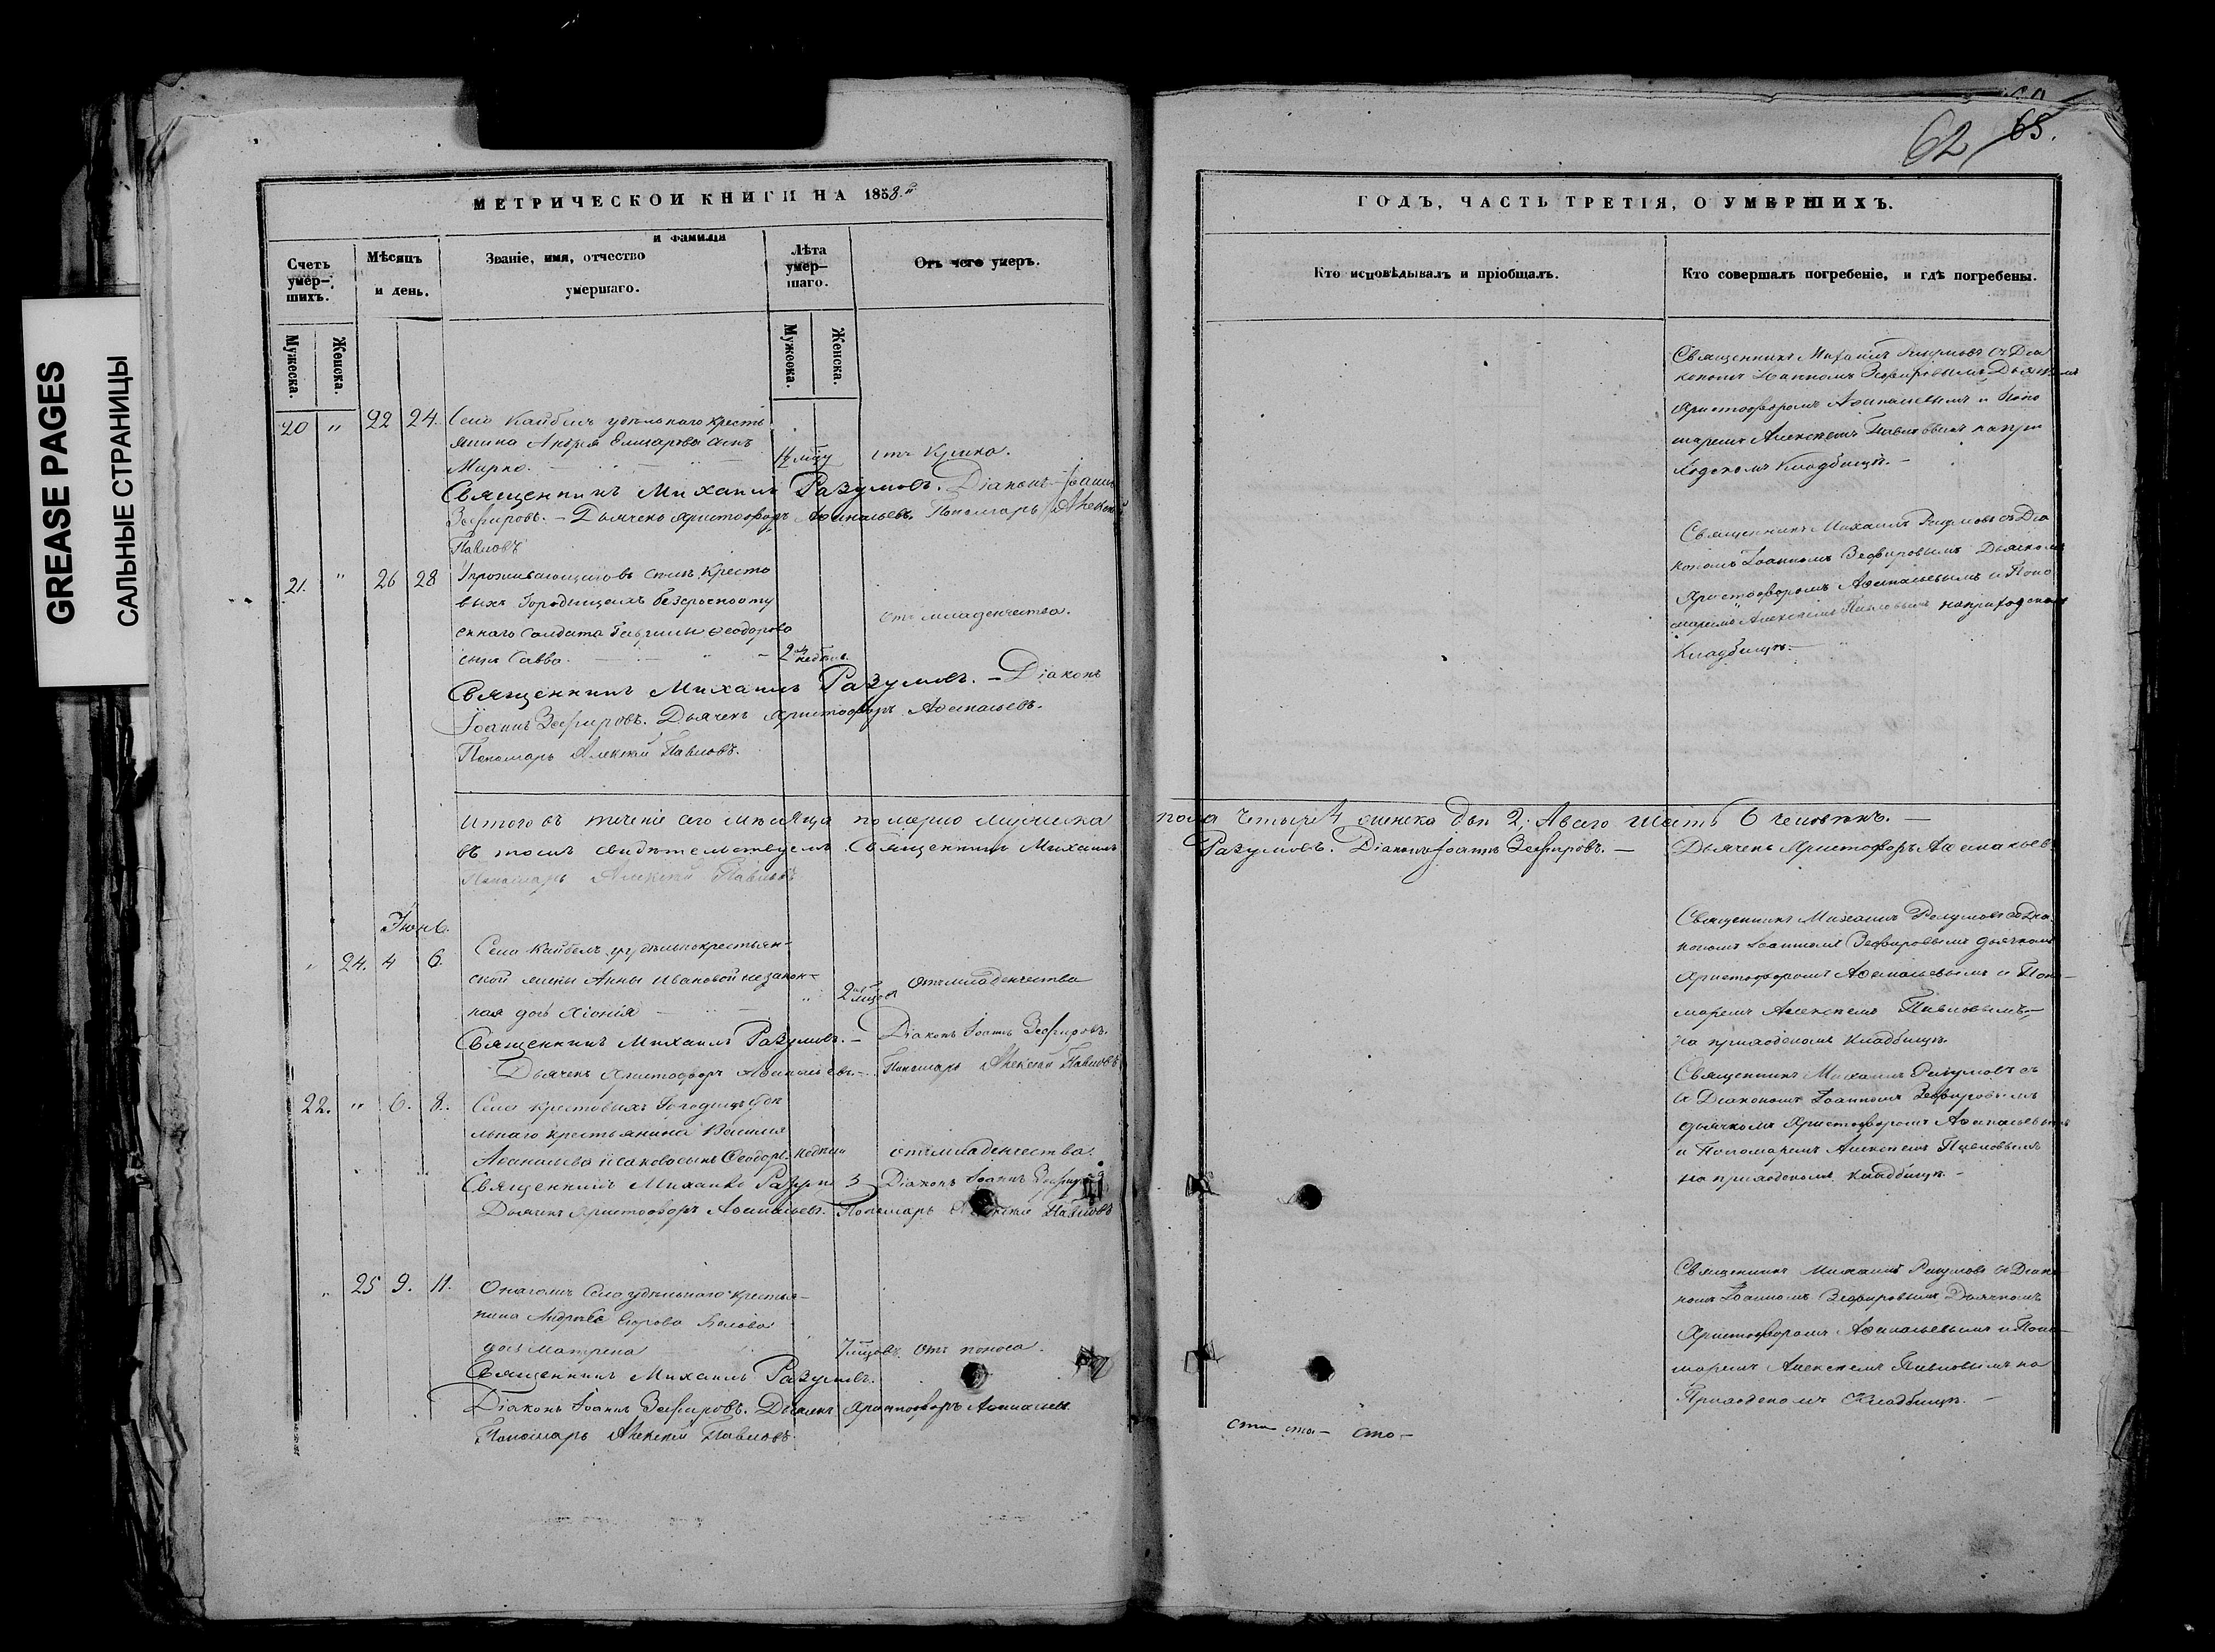 GREASE PAGES
САЛЬНЫЕ СТРАНИЦЫ
МЕТРИЧЕСКОЙ КНИГИ НА 1853.й
Счетъ умер-шихъ.
Мѣсяцъ и день.
и фамилія
Званіе, имя, отчество
умершаго.
Лѣта умер-шаго.
Отъ чего умеръ.
Мужеска.
Женска.
Мужеска.
Женска.
20 " 22 24. Село Кайбелъ удѣльнаго кресть
янина Андрея Елизарова сынъ
Марко.
отъ крика.
Священникъ Михаилъ Разумовъ. Діаконъ Іоаннъ
Зефировъ. – Дьячекъ Христофоръ Афанасьевъ. Пономарь Алексѣй
Павловъ
21. " 26 28 Проживающаго въ селѣ Кресто
выхъ Городищахъ безсрочноотпу
скнаго Солдата Гаврилы Феодорова
сынъ Савва. 2хъ недѣль
отъ младенчества.
Священникъ Михаилъ Разумовъ. – Діаконъ
Іоаннъ Зефировъ. Дьячекъ Христофоръ Афанасьевъ.
Пономарь Алексѣй Павловъ.
Итого въ теченіе сего мѣсяца померло мужеска
въ томъ свидѣтельствуемъ Священникъ Михаилъ
Пономарь Алексѣй Павловъ
Іюнь.
" 24. 4 6. Села Кайбелъ удѣльнокрестьян-
ской жены Анны Ивановой незакон-
ная дочь Хіонія " 2 отъ младенчества
Священникъ Михаилъ Разумовъ. – Діаконъ Іоаннъ Зефировъ.
Дьячекъ Христофоръ Афанасьевъ. – Пономарь Алексѣй Павловъ
22. " 6. 8. Села Крестовыхъ Городищъ удѣ
льнаго крестьянина Василія
Афанасьева Исакова сынъ Феодоръ недѣли отъ младенчества.
Священникъ Михаилъ Діаконъ Іоаннъ Зефировъ
Дьячекъ Христофоръ Афанасьевъ. Пономарь Алексѣй Павловъ
" 25 9. 11. Онагожъ Села удѣльнаго крестья-
нина Андрея Егорова
дочь Матрена 7 отъ поноса.
Священникъ Михаилъ Разумовъ.
Діаконъ Іоаннъ Зефировъ. Дьячекъ Христофоръ Афанасьевъ.
Пономарь Алексѣй Павловъ.
62 65.
ГОДЪ, ЧАСТЬ ТРЕТІЯ, О УМЕРШИХЪ.
Кто исповѣдывалъ и пріобщалъ.
Кто совершалъ погребеніе, и гдѣ погребены.
Священникъ Михаилъ Разумовъ съ Діа
кономъ Іоанномъ Зефировымъ, Дьячкомъ
Христофоромъ Афанасьевымъ и Поно
маремъ Алексѣемъ Павловымъ на при
ходскомъ Кладбищѣ. –
Священникъ Михаилъ Разумовъ съ Діа
кономъ Іоанномъ Зефировымъ Дьячкомъ
Христофоромъ Афанасьевымъ и Поно
маремъ Алексѣемъ Павловымъ на приходскомъ
Кладбищѣ. –
пола четыре 4 женска двѣ 2, А всего шесть 6 человѣкъ. –
Разумовъ. Діаконъ Іоаннъ Зефировъ. – Дьячекъ Христофоръ Афанасьевъ
Священникъ Михаилъ Разумовъ съ Діа
кономъ Іоанномъ Зефировымъ дьячкомъ
Христофоромъ Афанасьевымъ и Поно-
маремъ Алексѣемъ Павловымъ, –
на приходскомъ Кладбищѣ.
Священникъ Михаилъ Разумовъ съ
съ Діакономъ Іоанномъ Зефировымъ
дьячкомъ Христофоромъ Афанасьевымъ
и Пономаремъ Алексѣемъ Павловымъ
на приходскомъ кладбищѣ. –
Священникъ Михаилъ Разумовъ съ Діако-
номъ Іоанномъ Зефировымъ Дьячкомъ
Христофоромъ Афанасьевымъ и Поно-
маремъ Алексѣемъ Павловымъ на
Приходскомъ Кладбищѣ. –
ста ста – сто –